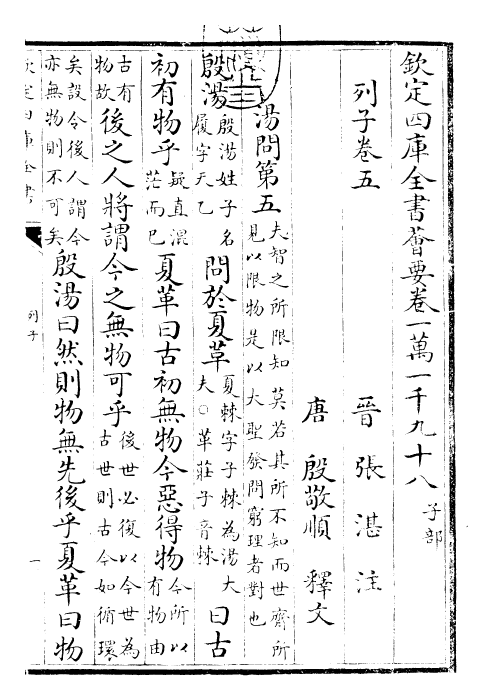 欽定四庫全書薈要卷一萬一千九十八 子部
列子卷五
晉 張湛 注
唐 殷敬順 釋文
湯問第五 夫智之所限知莫若其所不知而世齊所見以限物是以大聖發問窮理者對也
殷湯 殷湯姓子名履字天乙 問於夏革 夏棘字子棘為湯大夫○革莊子音棘 曰古
初有物乎 疑直混茫而已 夏革曰古初無物今惡得物 今所以有物由
古有物故 後之人將謂今之無物可乎 後世必復以今世為古世則古今如循環
矣設令後人謂今亦無物則不可矣 殷湯曰然則物無先後乎夏革曰物
欽定四庫全書
列子
一